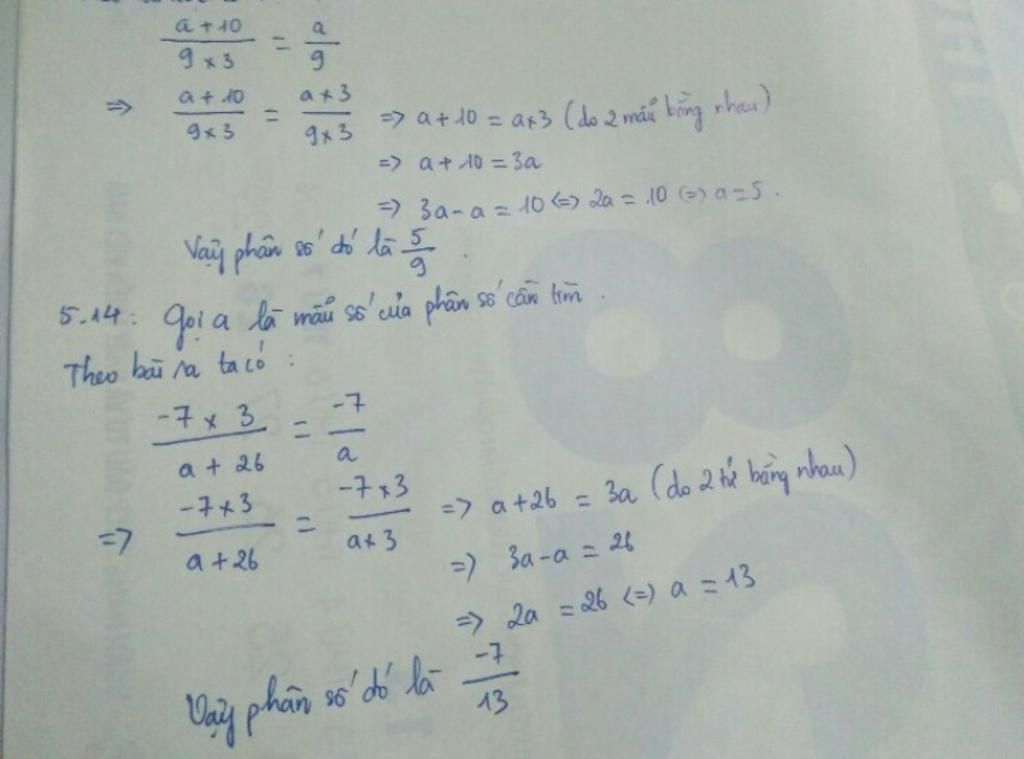 a + 10 / 9 × 3 = a / 9
=> a + 10 / 9 × 3 = a × 3 / 9 × 3 => a + 10 = a × 3 (do 2 mẫu bằng nhau)
=> a + 10 = 3a
=> 3a - a = 10 <=> 2a = 10 <=> a = 5.
Vậy phân số đó là 5/9.
5.14: Gọi a là mẫu số của phân số cần tìm.
Theo bài ra ta có:
-7 × 3 / a + 26 = -7 / a
=> -7 × 3 / a + 26 = -7 × 3 / a × 3 => a + 26 = 3a (do 2 tử bằng nhau)
=> 3a - a = 26
=> 2a = 26 <=> a = 13
Vậy phân số đó là -7/13